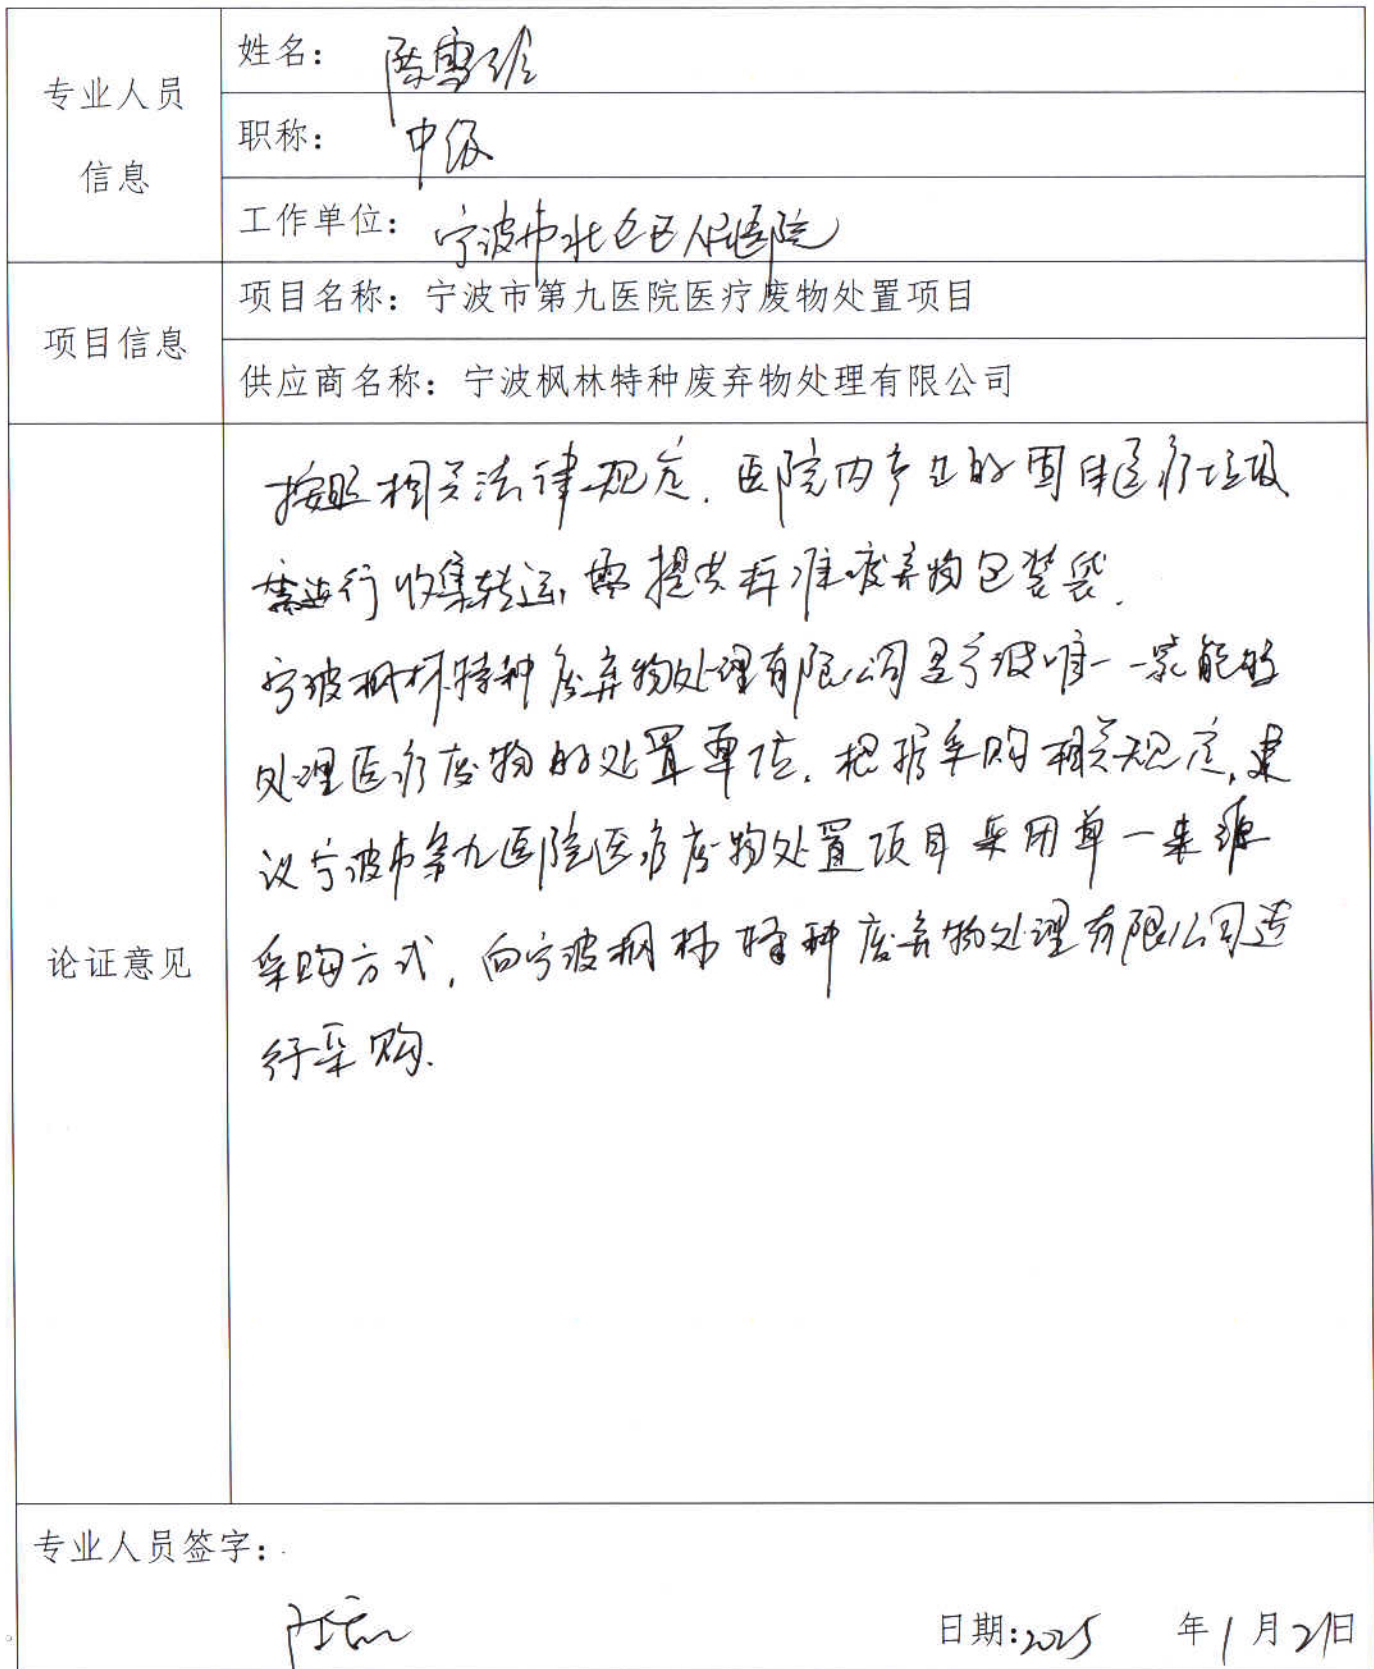 专业人员
信息
姓名：陈雪
职称：中级
工作单位：宁波市北仑区人民医院
项目信息
项目名称：宁波市第九医院医疗废物处置项目
供应商名称：宁波枫林特种废弃物处理有限公司
论证意见
按照相关法律规定，医院内产生的固体医疗垃圾
需进行收集转运，需提供标准废弃物包装袋。
宁波枫林特种废弃物处理有限公司是宁波唯一一家能够
处理医疗废物的处置单位。根据采购相关规定，建
议宁波市第九医院医疗废物处置项目采用单一来源
采购方式，向宁波枫林特种废弃物处理有限公司进
行采购.
专业人员签字：
日期:2025 年1月21日